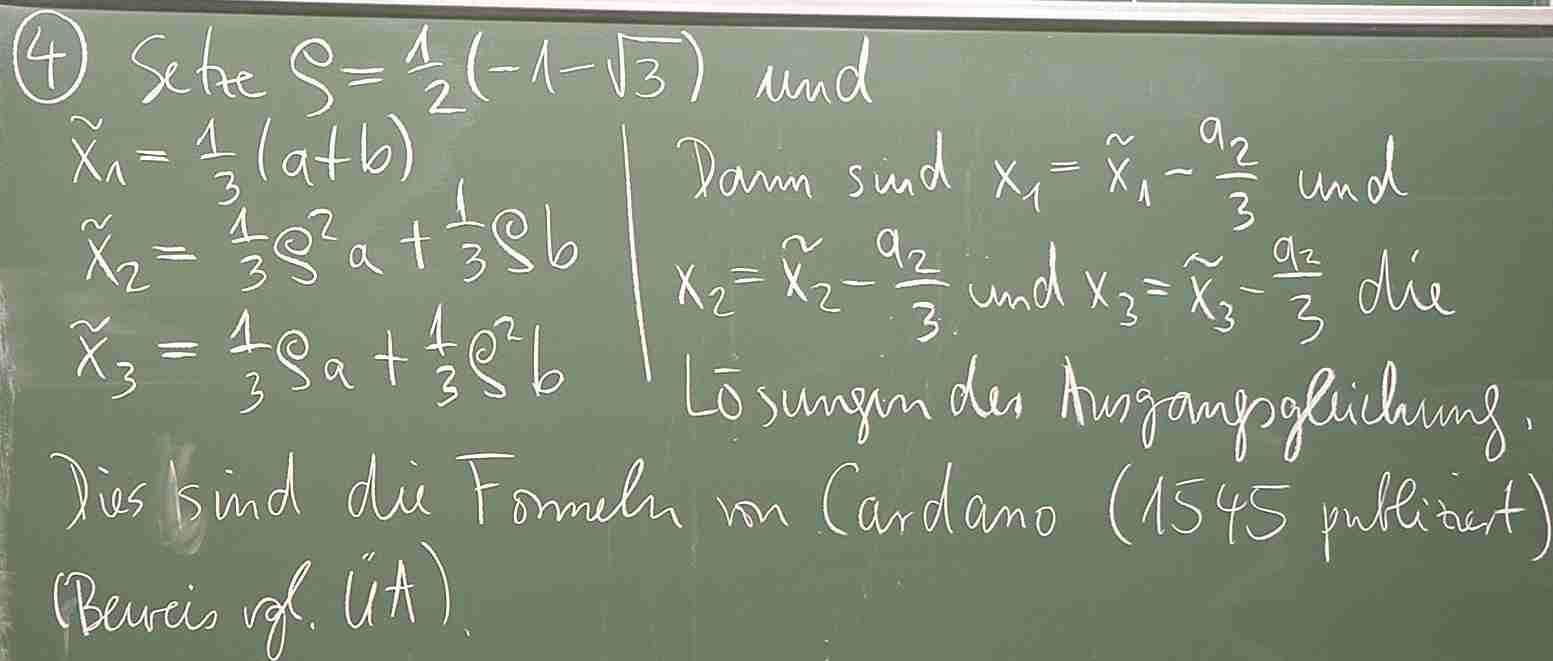 ④ Setze ρ = 1/2 (-1-√3) und
x̃₁ = 1/3 (a+b)
x̃₂ = 1/3 ρ² a + 1/3 ρ b
x̃₃ = 1/3 ρ a + 1/3 ρ² b
Dann sind x₁ = x̃₁ - a₂/3 und
x₂ = x̃₂ - a₂/3 und x₃ = x̃₃ - a₂/3 die
Lösungen der Ausgangsgleichung.
Dies sind die Formeln von Cardano (1545 publiziert)
(Beweis vgl. ÜA).